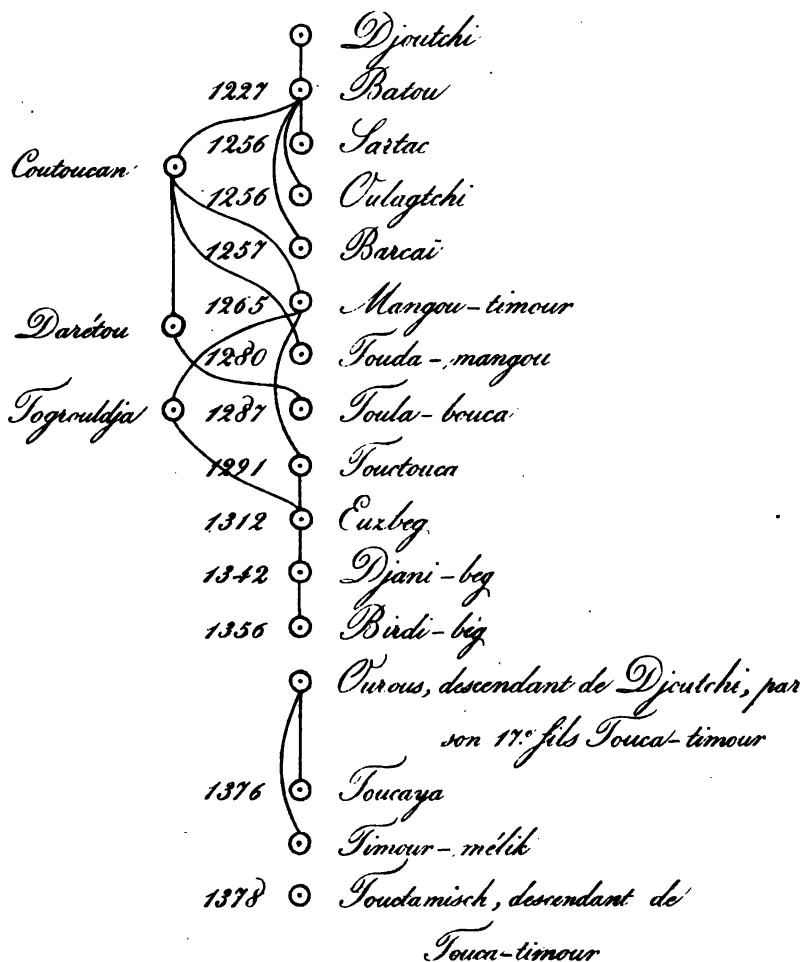 Djoutchi
1227 Batou
1256 Sartac
Coutoucan
1256 Oulagtchi
1257 Barcaï
1265 Mangou-timour
Darétou
1280 Touda-mangou
Togrouldja
1287 Toula-bouca
1291 Touctouca
1312 Euzbeg
1342 Djani-beg
1356 Birdi-bég
Ourous, descendant de Djoutchi, par
son 17.e fils Touca-timour
1376 Toucaya
Timour-mélik
1378 Touctamisch, descendant de
Touca-timour